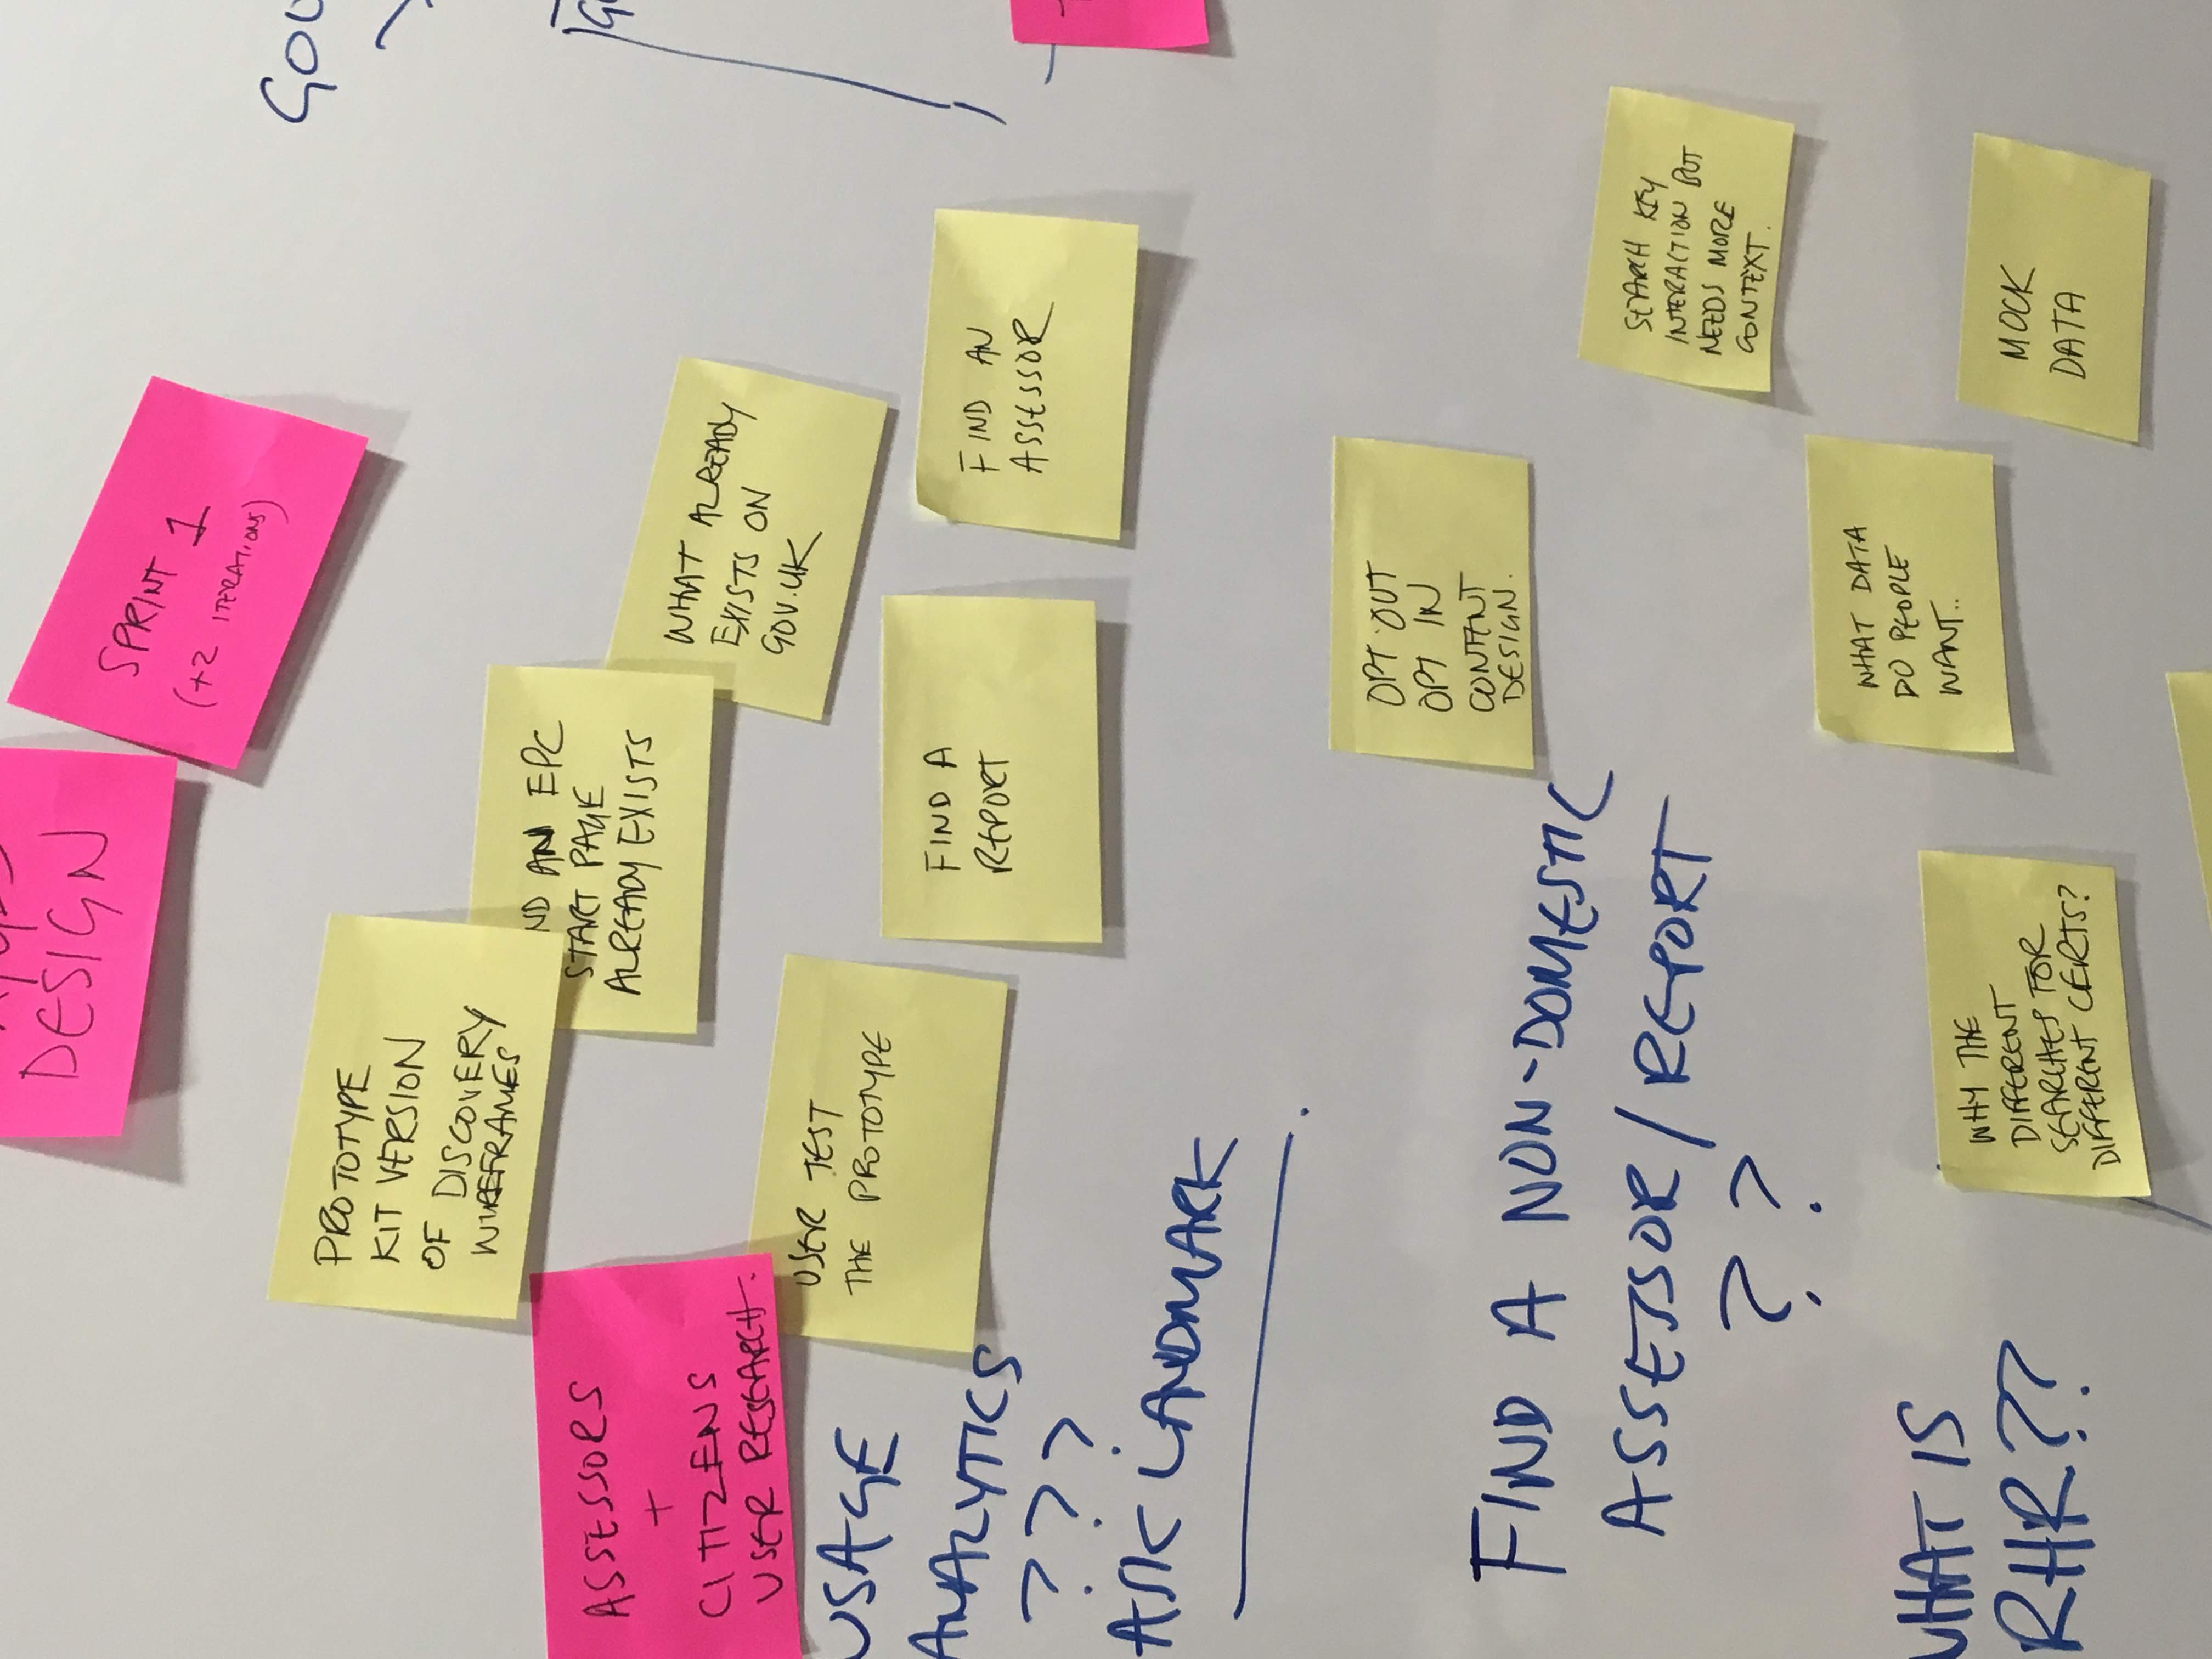 DESIGN
SPRINT 1
(+2 ITERATIONS)
GOV
PROTOTYPE
KIT VERSION
OF DISCOVERY
WIREFRAMES
ND AN EPC
START PAGE
ALREADY EXISTS
ASSESSORS
+
CITIZENS
USER RESEARCH.
WHAT ALREADY
EXISTS ON
GOV.UK
USER TEST
THE PROTOTYPE
USAGE
ANALYTICS
???
ASK LANDMARK
FIND A
REPORT
FIND AN
ASSESSOR
OPT OUT
OPT IN
CONTENT
DESIGN.
FIND A NON-DOMESTIC
ASSESSOR/REPORT
??
SEARCH KEY
INTERACTION BUT
NEEDS MORE
CONTEXT.
WHAT DATA
DO PEOPLE
WANT..
WHAT IS
RHR??
WHY THE
DIFFERENT
SEARCHES FOR
DIFFERENT CERTS?
MOCK
DATA